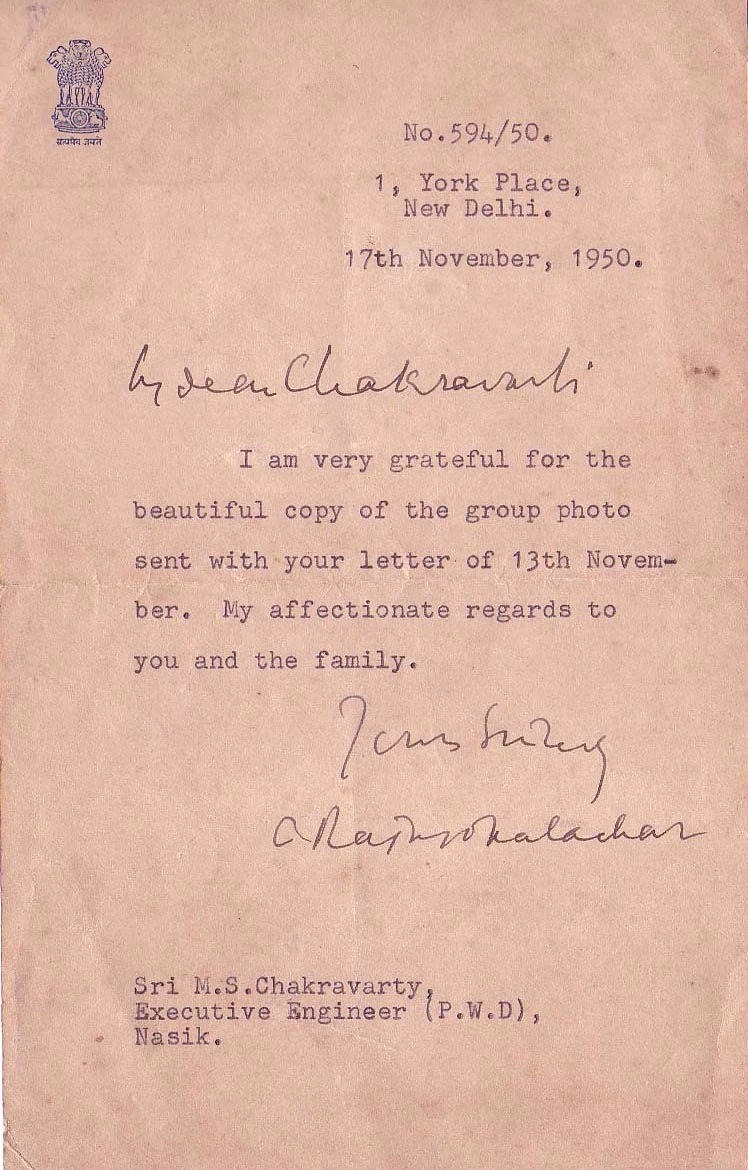 सत्यमेव जयते
No.594/50.
1, York Place,
New Delhi.
17th November, 1950.
My dear Chakravarti
I am very grateful for the
beautiful copy of the group photo
sent with your letter of 13th Novem-
ber. My affectionate regards to
you and the family.
Yours Sincerely
C Rajagopalachar
Sri M.S.Chakravarty,
Executive Engineer (P.W.D),
Nasik.